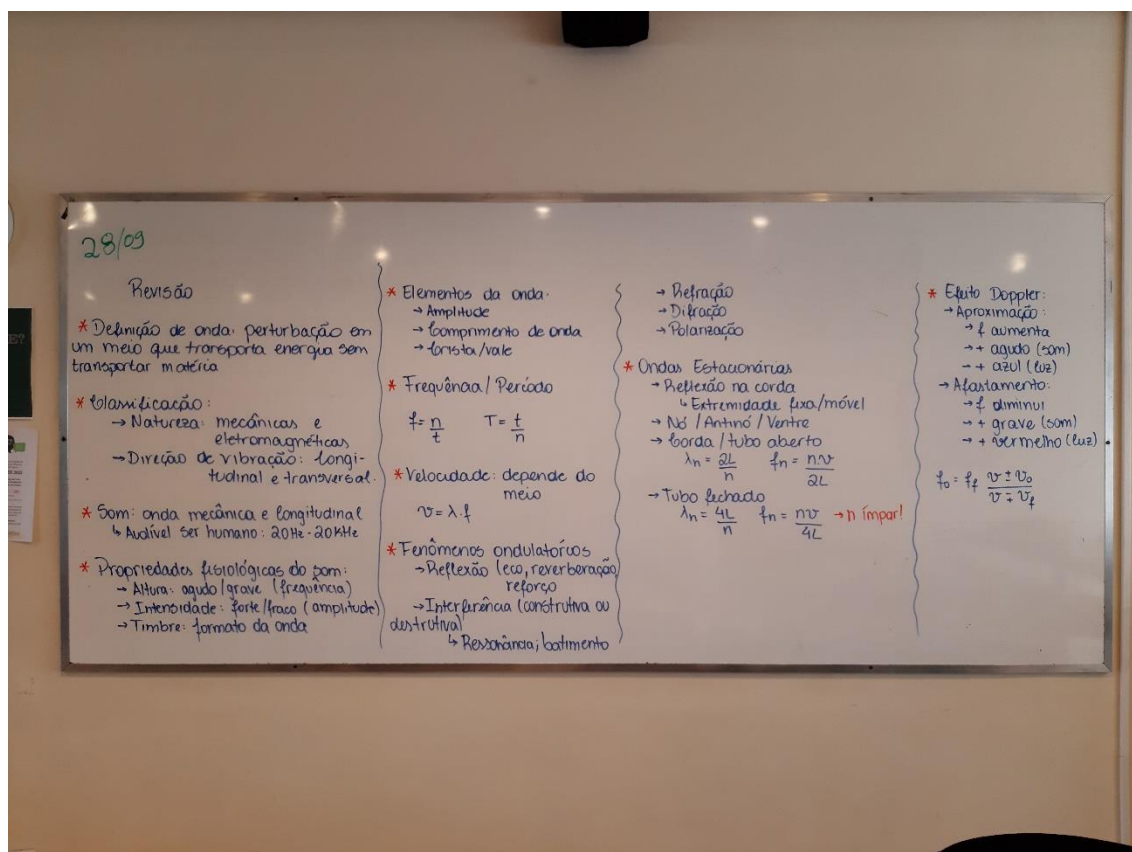 28/09
Revisão
* Definição de onda: perturbação em
um meio que transporta energia sem
transportar matéria
* Classificação:
→ Natureza: mecânicas e
eletromagnéticas
→ Direção de vibração: longi-
tudinal e transversal.
* Som: onda mecânica e longitudinal
↳ Audível ser humano: 20Hz - 20KHz
* Propriedades fisiológicas do som:
→ Altura: agudo/grave (frequência)
→ Intensidade: forte/fraco (amplitude)
→ Timbre: formato da onda
* Elementos da onda:
→ Amplitude
→ Comprimento de onda
→ Crista/vale
* Frequência / Período
f = n/t T = t/n
* Velocidade: depende do
meio
v = λ.f
* Fenômenos ondulatórios
→ Reflexão (eco, reverberação,
reforço
→ Interferência (construtiva ou
destrutiva)
↳ Ressonância; batimento
→ Refração
→ Difração
→ Polarização
* Ondas Estacionárias
→ Reflexão na corda
↳ Extremidade fixa/móvel
→ Nó / Antinó / Ventre
→ Corda / tubo aberto
λn = 2L/n fn = n.v/2L
→ Tubo fechado
λn = 4L/n fn = nv/4L → n ímpar!
* Efeito Doppler:
→ Aproximação:
→ f aumenta
→ + agudo (som)
→ + azul (luz)
→ Afastamento:
→ f diminui
→ + grave (som)
→ + vermelho (luz)
fo = ff v ± vo / v ∓ vf